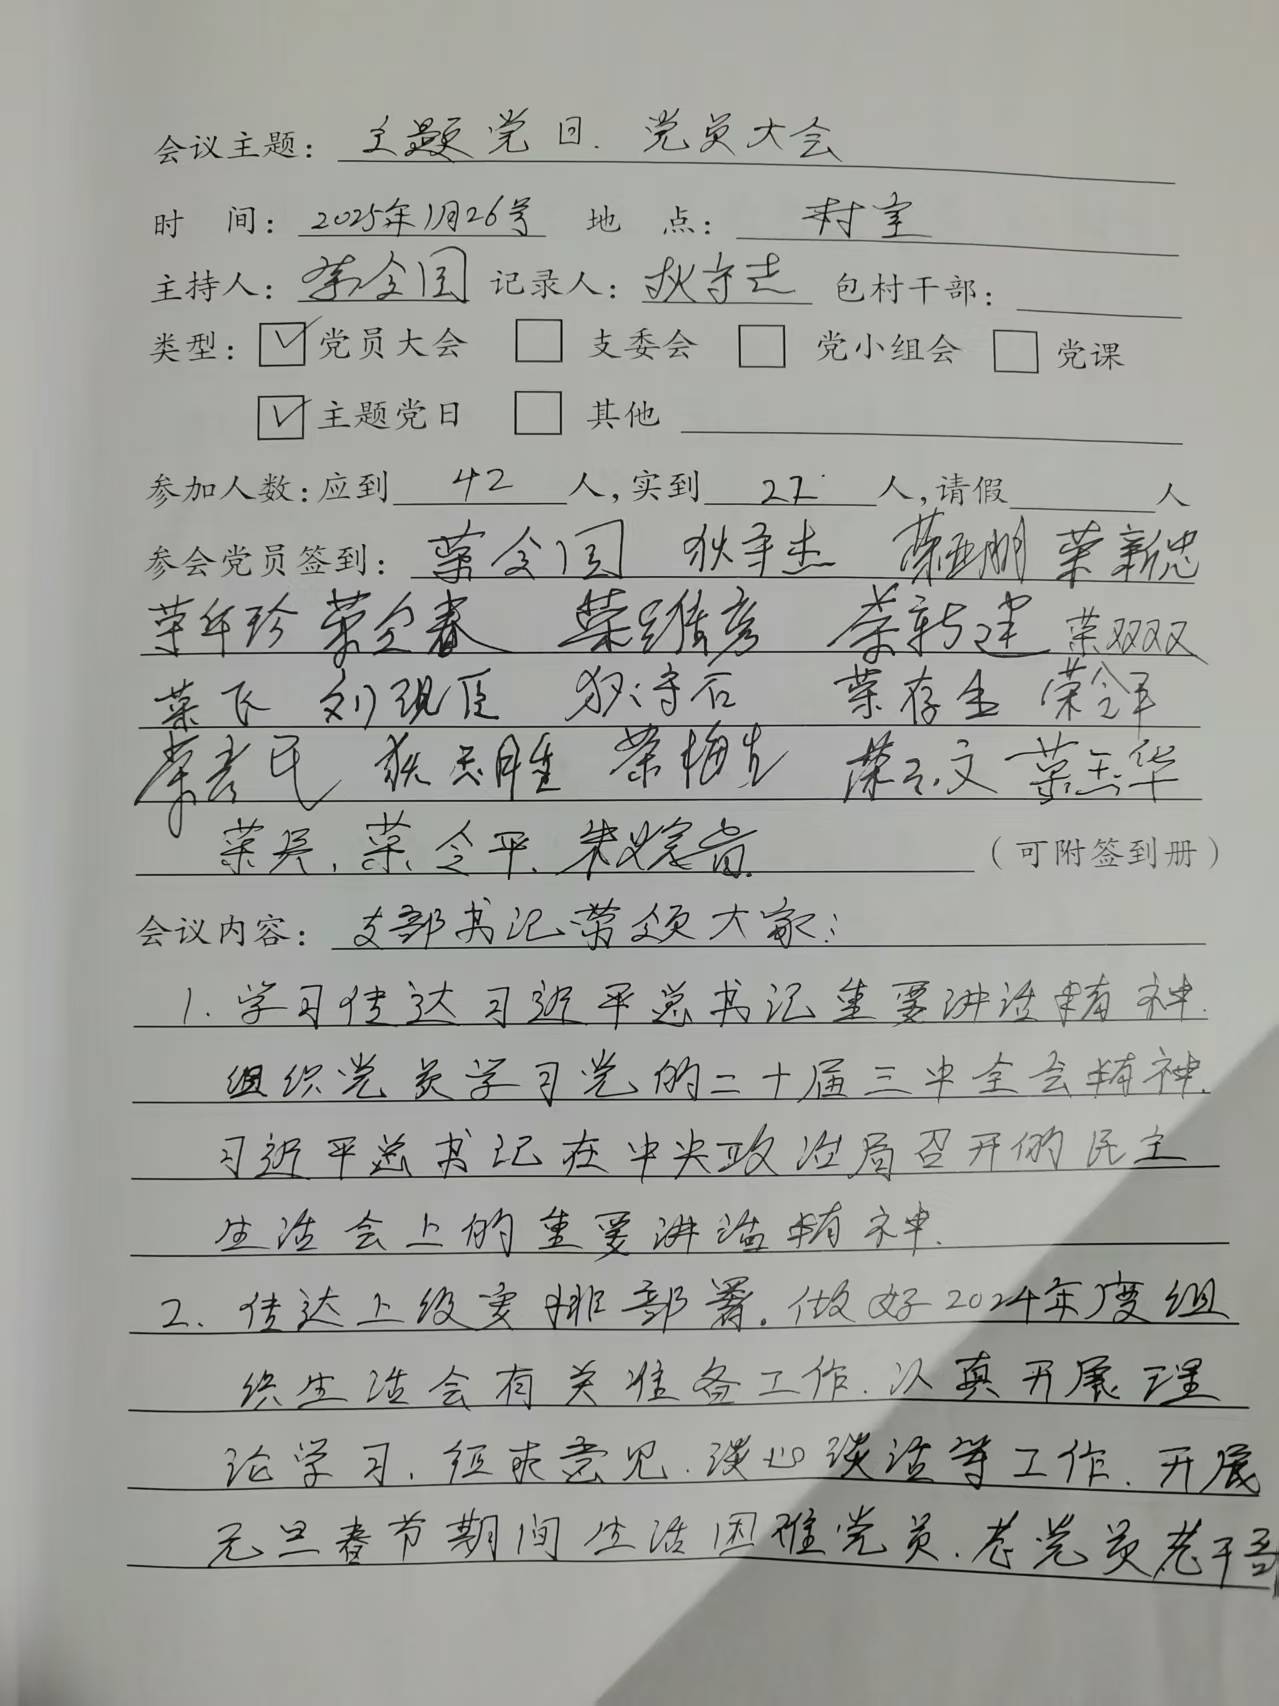 会议主题：主题党日、党员大会
时 间：2025年1月26号 地 点：村室
主持人：荣全国 记录人：狄守志 包村干部：
类型：☑党员大会 □支委会 □党小组会 □党课
☑主题党日 □其他
参加人数：应到42人，实到27人，请假 人
参会党员签到：荣全国 狄守杰 荣亚朋 荣新忠
荣年珍 荣全春 荣维彦 荣新建 荣双双
荣飞 刘现臣 狄守石 荣存生 荣全军
狄天胜 荣梅先
荣兵、荣令平、（可附签到册）
会议内容：支部书记带领大家：
1. 学习传达习近平总书记重要讲话精神.
组织党员学习党的二十届三中全会精神.
习近平总书记在中央政治局召开的民主
生活会上的重要讲话精神.
2. 传达上级安排部署。做好2024年度组
织生活会有关准备工作.认真开展理
论学习.征求意见.谈心谈话等工作.开展
元旦春节期间生活困难党员.老党员老干部